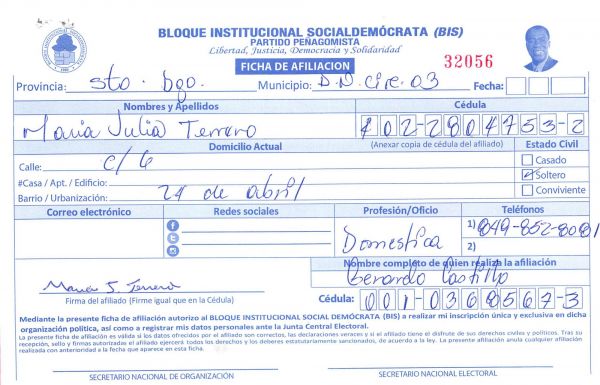 BLOQUE INSTITUCIONAL SOCIALDEMÓCRATA (BIS)
PARTIDO PEÑAGOMISTA
Libertad, Justicia, Democracia y Solidaridad
FICHA DE AFILIACION 32056
Provincia: Sto. Dgo. Municipio: D.N. Circ. 03 Fecha:
Nombres y Apellidos Cédula
Maria Julia Terrero 402-2804753-2
Domicilio Actual (Anexar copia de cédula del afiliado) Estado Civil
Calle: C/6 Casado
#Casa / Apt. / Edificio: Soltero
Barrio / Urbanización: 24 de abril Conviviente
Correo electrónico Redes sociales Profesión/Oficio Teléfonos
Domestica 1) 849-852-8081
2)
Nombre completo de quien realiza la afiliación
Maria J. Terrero Gerardo Castillo
Firma del afiliado (Firme igual que en la Cédula) Cédula: 001-0368567-3
Mediante la presente ficha de afiliacion autorizo al BLOQUE INSTITUCIONAL SOCIAL DEMÓCRATA (BIS) a realizar mi inscripción única y exclusiva en dicha
organización politica, así como a registrar mis datos personales ante la Junta Central Electoral.
La presente ficha de afiliación es válida si los datos ofrecidos por el afiliado son correctos, las declaraciones veraces y si el afiliado tiene el disfrute de sus derechos civiles y políticos. Tras su
recepción, sello y firmas autorizadas el afiliado ejercerá todos los derechos y los deberes estatutariamente sancionados, de acuerdo a la ley. La presente afiliación anula cualquier afiliación
realizada con anterioridad a la fecha que aparece en esta ficha.
SECRETARIO NACIONAL DE ORGANIZACIÓN SECRETARIO NACIONAL ELECTORAL